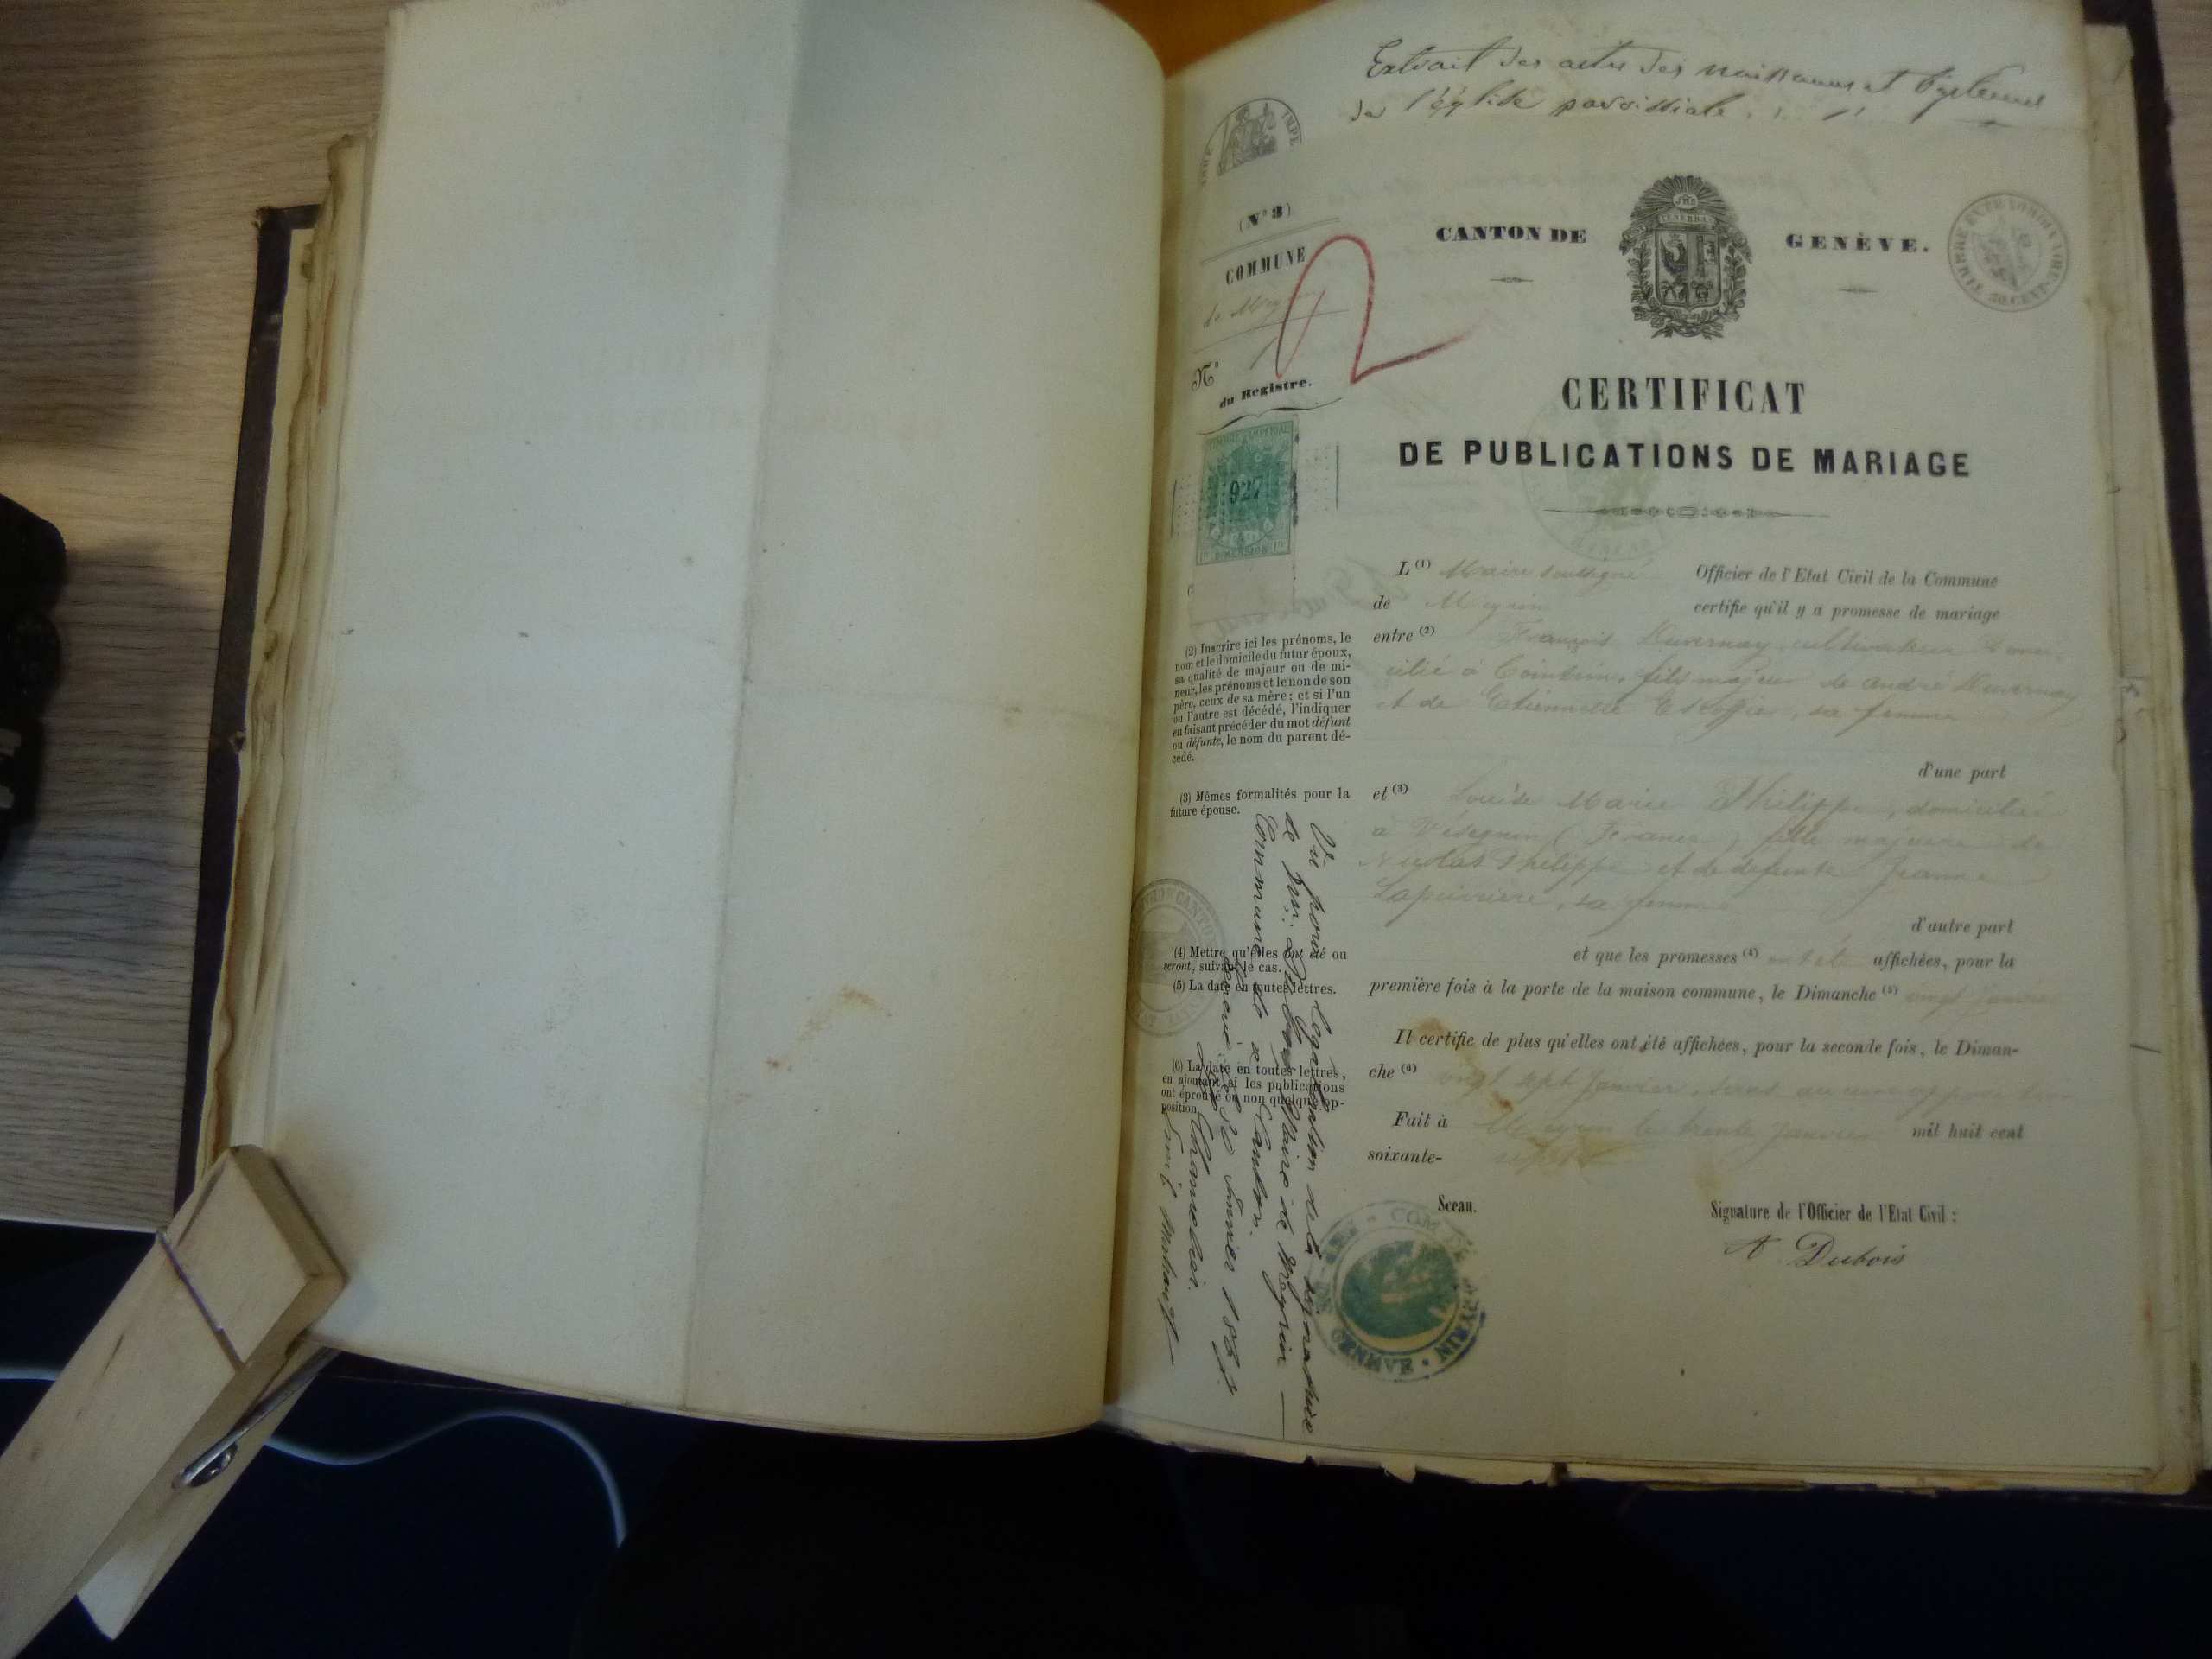 Extrait des actes des naissances et
de l'église paroissiale
TIMBRE IMPE
(N° 3)
COMMUNE
de Meyrin
2
N° 1
du Registre.
CANTON DE GENÈVE.
CERTIFICAT
DE PUBLICATIONS DE MARIAGE
927
L(1) Maire soussigné Officier de l'Etat Civil de la Commune
de Meyrin certifie qu'il y a promesse de mariage
entre (2) François Duvernay, cultivateur, domi-
cilié à Cointrin, fils majeur de André Duvernay
et de Etiennette sa femme
d'une part
et (3) Louise Marie Philippe, domiciliée
à Vésegnin (France) fille majeure de
Philippe et de défunte Jeanne
sa femme
d'autre part
et que les promesses (4) ont été affichées, pour la
première fois à la porte de la maison commune, le Dimanche (5) vingt janvier
Il certifie de plus qu'elles ont été affichées, pour la seconde fois, le Diman-
che (6) vingt sept Janvier, sans aucune opposition
Fait à Meyrin le trente Janvier mil huit cent
soixante- sept
Sceau.
Signature de l'Officier de l'Etat Civil :
A Dubois
(2) Inscrire ici les prénoms, le
nom et le domicile du futur époux,
sa qualité de majeur ou de mi-
neur, les prénoms et le nom de son
père, ceux de sa mère ; et si l'un
ou l'autre est décédé, l'indiquer
en faisant précéder du mot défunt
ou défunte, le nom du parent dé-
cédé.
(3) Mêmes formalités pour la
future épouse.
(4) Mettre qu'elles ont été ou
seront, suivant le cas.
(5) La date en toutes lettres.
(6) La date en toutes lettres,
en ajoutant si les publications
ont éprouvé ou non quelque op-
position.
Vu pour légalisation de la signature
de Mr Dubois Maire de Meyrin
Commune de ce Canton.
Genève, le 30 Janvier 1867
Chancelier.